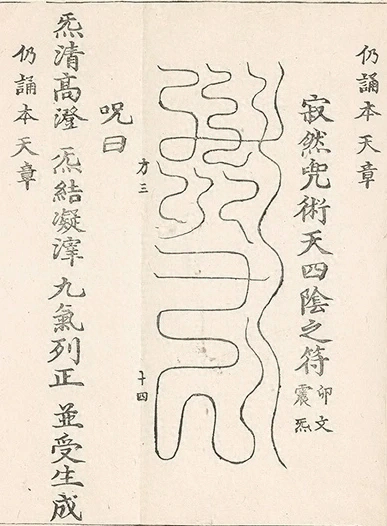 仍誦本天章
寂然兜術天四陰之符
卯文
震炁
方三
十四
咒曰
炁清高澄 炁結凝滓 九氣列正 並受生成
仍誦本天章